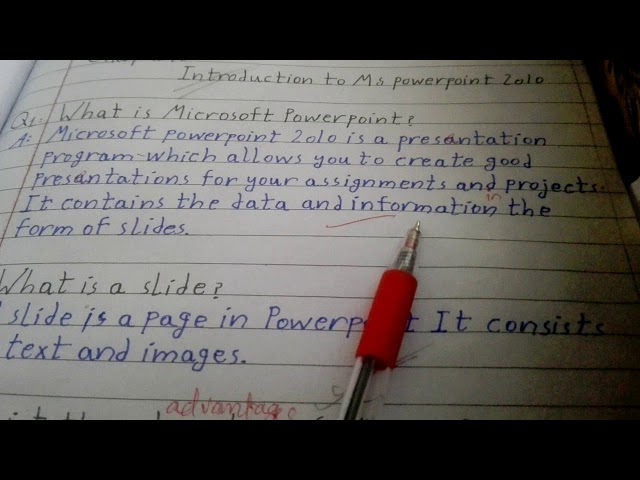 Introduction to Ms powerpoint 2010
Q1: What is Microsoft Powerpoint?
A: Microsoft powerpoint 2010 is a presentation
program which allows you to create good
presentations for your assignments and projects.
It contains the data and information in the
form of slides.
What is a slide?
slide is a page in Powerpoint It consists
text and images.
advantages